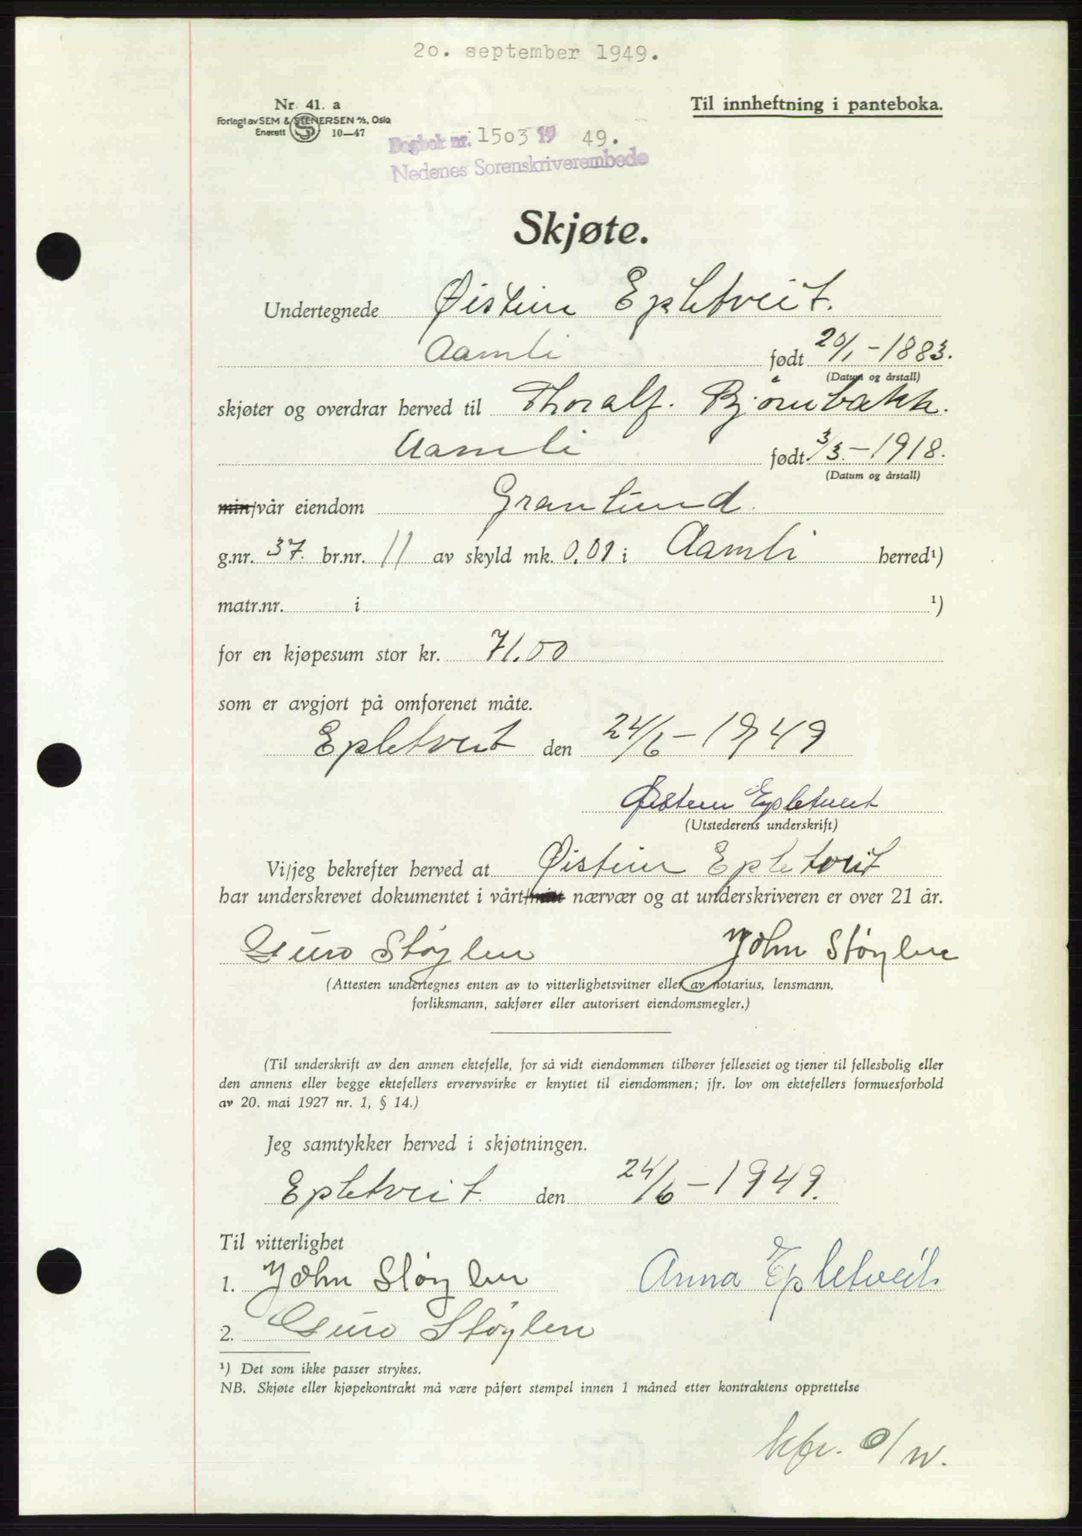 20. september 1949.
Nr. 41. a
Til innheftning i panteboka.
Forlagt av SEM & STENERSEN A/S, Oslo
Enerett 10—47
Dagbok nr. 1503 19 49.
Nedenes Sorenskriverembede
Skjøte.
Undertegnede Øistein Epletveit.
Aamli født 20/1-1883.
(Datum og årstall)
skjøter og overdrar herved til Thoralf. Bjørnbakk.
Aamli født 3/3.-1918.
(Datum og årstall)
min/vår eiendom Granlund.
g.nr. 37. br.nr. 11 av skyld mk. 0.01 i Aamli herred¹)
matr.nr. i ¹)
for en kjøpesum stor kr. 71.00
som er avgjort på omforenet måte.
Epletveit den 24/6-1949
Øistein Epletveit
(Utstederens underskrift)
Vi/jeg bekrefter herved at Øistein Epletveit
har underskrevet dokumentet i vårt/mitt nærvær og at underskriveren er over 21 år.
Guro Støylen John Støylen
(Attesten undertegnes enten av to vitterlighetsvitner eller av notarius, lensmann,
forliksmann, sakfører eller autorisert eiendomsmegler.)
(Til underskrift av den annen ektefelle, for så vidt eiendommen tilhører felleseiet og tjener til fellesbolig eller
den annens eller begge ektefellers ervervsvirke er knyttet til eiendommen; jfr. lov om ektefellers formuesforhold
av 20. mai 1927 nr. 1, § 14.)
Jeg samtykker herved i skjøtningen.
Epletveit den 24/6-1949.
Til vitterlighet
1. John Støylen Anna Epletveit.
2. Guro Støylen
¹) Det som ikke passer strykes.
NB. Skjøte eller kjøpekontrakt må være påført stempel innen 1 måned etter kontraktens opprettelse